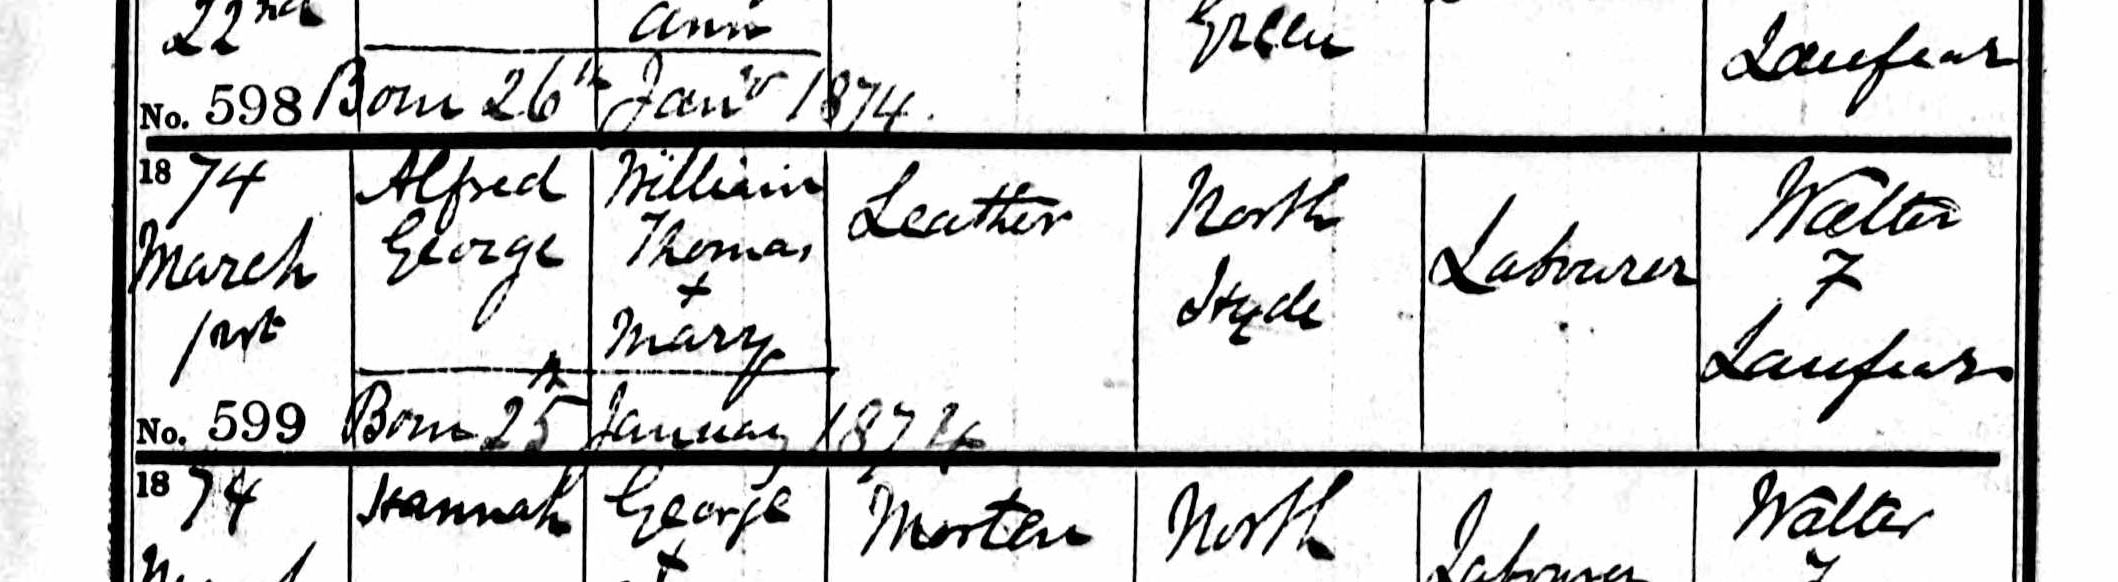 22nd
Ann
Green
Lanfear
No. 598 Born 26th Jany 1874.
1874
March
1st
Alfred
George
William
Thomas
+
Mary
Leather
North
Hyde
Labourer
Walter
F
Lanfear
No. 599 Born 25th January 1874
1874
Hannah
George
+
Morten
North
Labourer
Walter